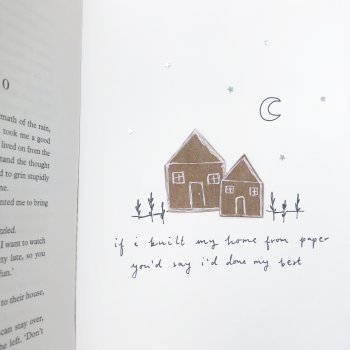 0
tmath of the rain,
took me a good
lived on from the
tand the thought
d to grin stupidly
ne.
nted me to bring
zled.
I want to watch
ny late, so you
fun.'
to their house,
can stay over,
he left. 'Don't
if i built my home from paper
you'd say i'd done my best